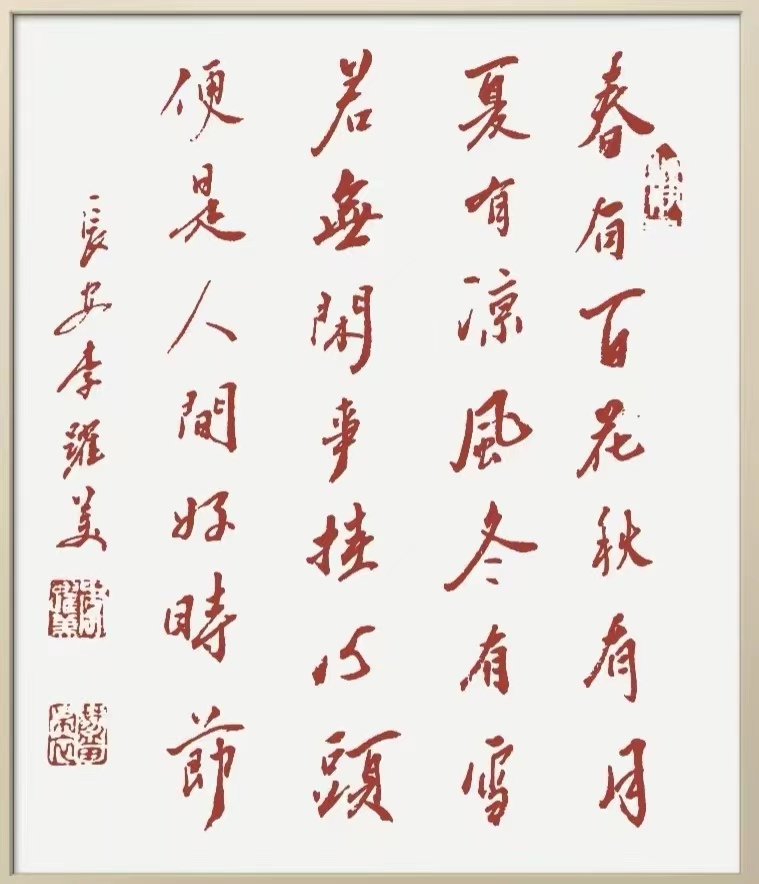 春有百花秋有月
夏有凉風冬有雪
若無閑事挂心頭
便是人間好時節
長安李躍美